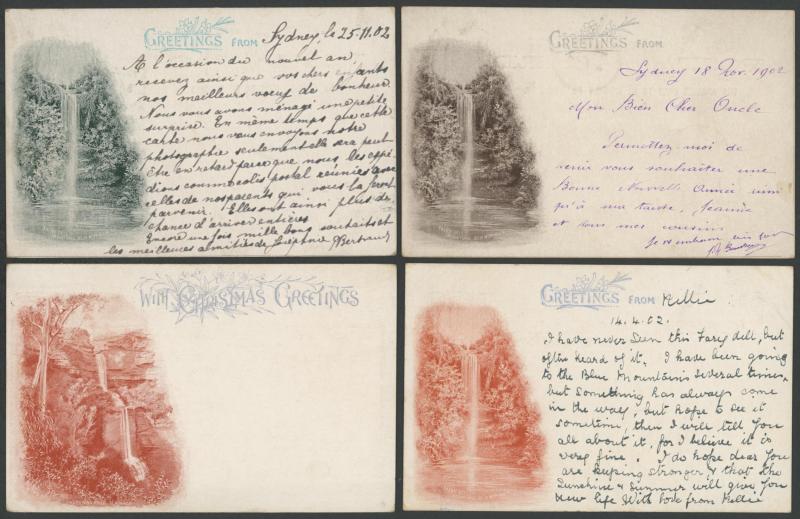 GREETINGS FROM Sydney, le 25-11.02
A l'occasion du nouvel an
recevez ainsi que vos chers enfants
nos meilleurs voeux de bonheur.
Nous vous avons ménagé une petite
surprise. En même temps que cette
carte nous vous envoyons notre
photographie seulement elle sera peut-
être en retard parce que nous les expé-
dions comme colis postal réunies avec
celles de nos parents qui vous la feront
parvenir. Elles ont ainsi plus de
chance d'arriver entières
Encore une fois mille bons souhaits et
les meilleures amitiés de Bertrand
GREETINGS FROM
Sydney 18 Nov. 1902
Mon Bien Cher Oncle
Permettez moi de
venir vous souhaiter une
Bonne Nouvelle Année ainsi
qu'à ma tante, Jeanne
et tous mes cousins
Je vous
WITH CHRISTMAS GREETINGS
GREETINGS FROM Nellie
14.4.02.
I have never seen this Fairy dell, but
often heard of it. I have been going
to the Blue Mountains several times,
but something has always come
in the way, but hope to see it
sometime, then I will tell you
all about it, for I believe it is
very fine. I do hope dear you
are keeping stronger & that the
Sunshine & Summer will give you
new life With love from Nellie